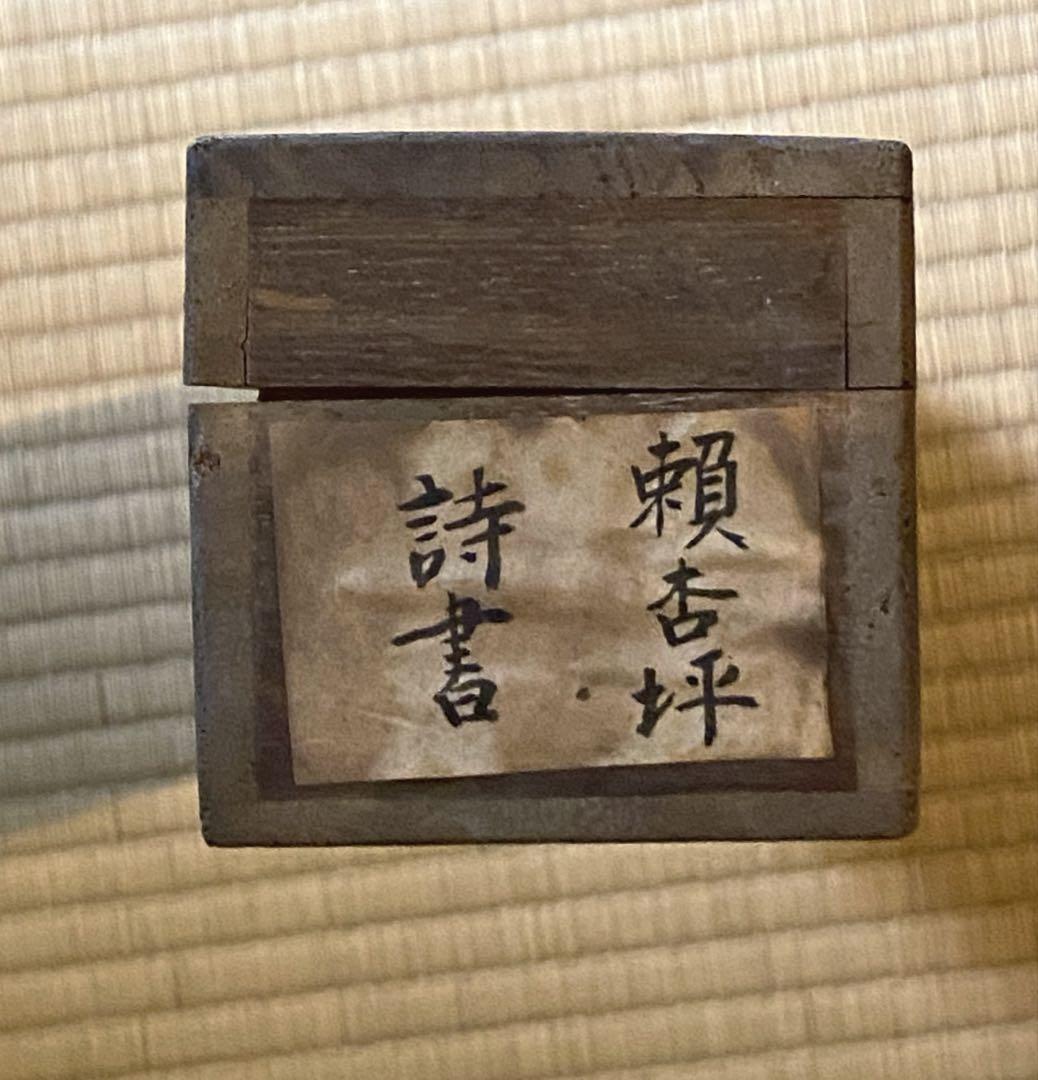 頼杏坪
詩書